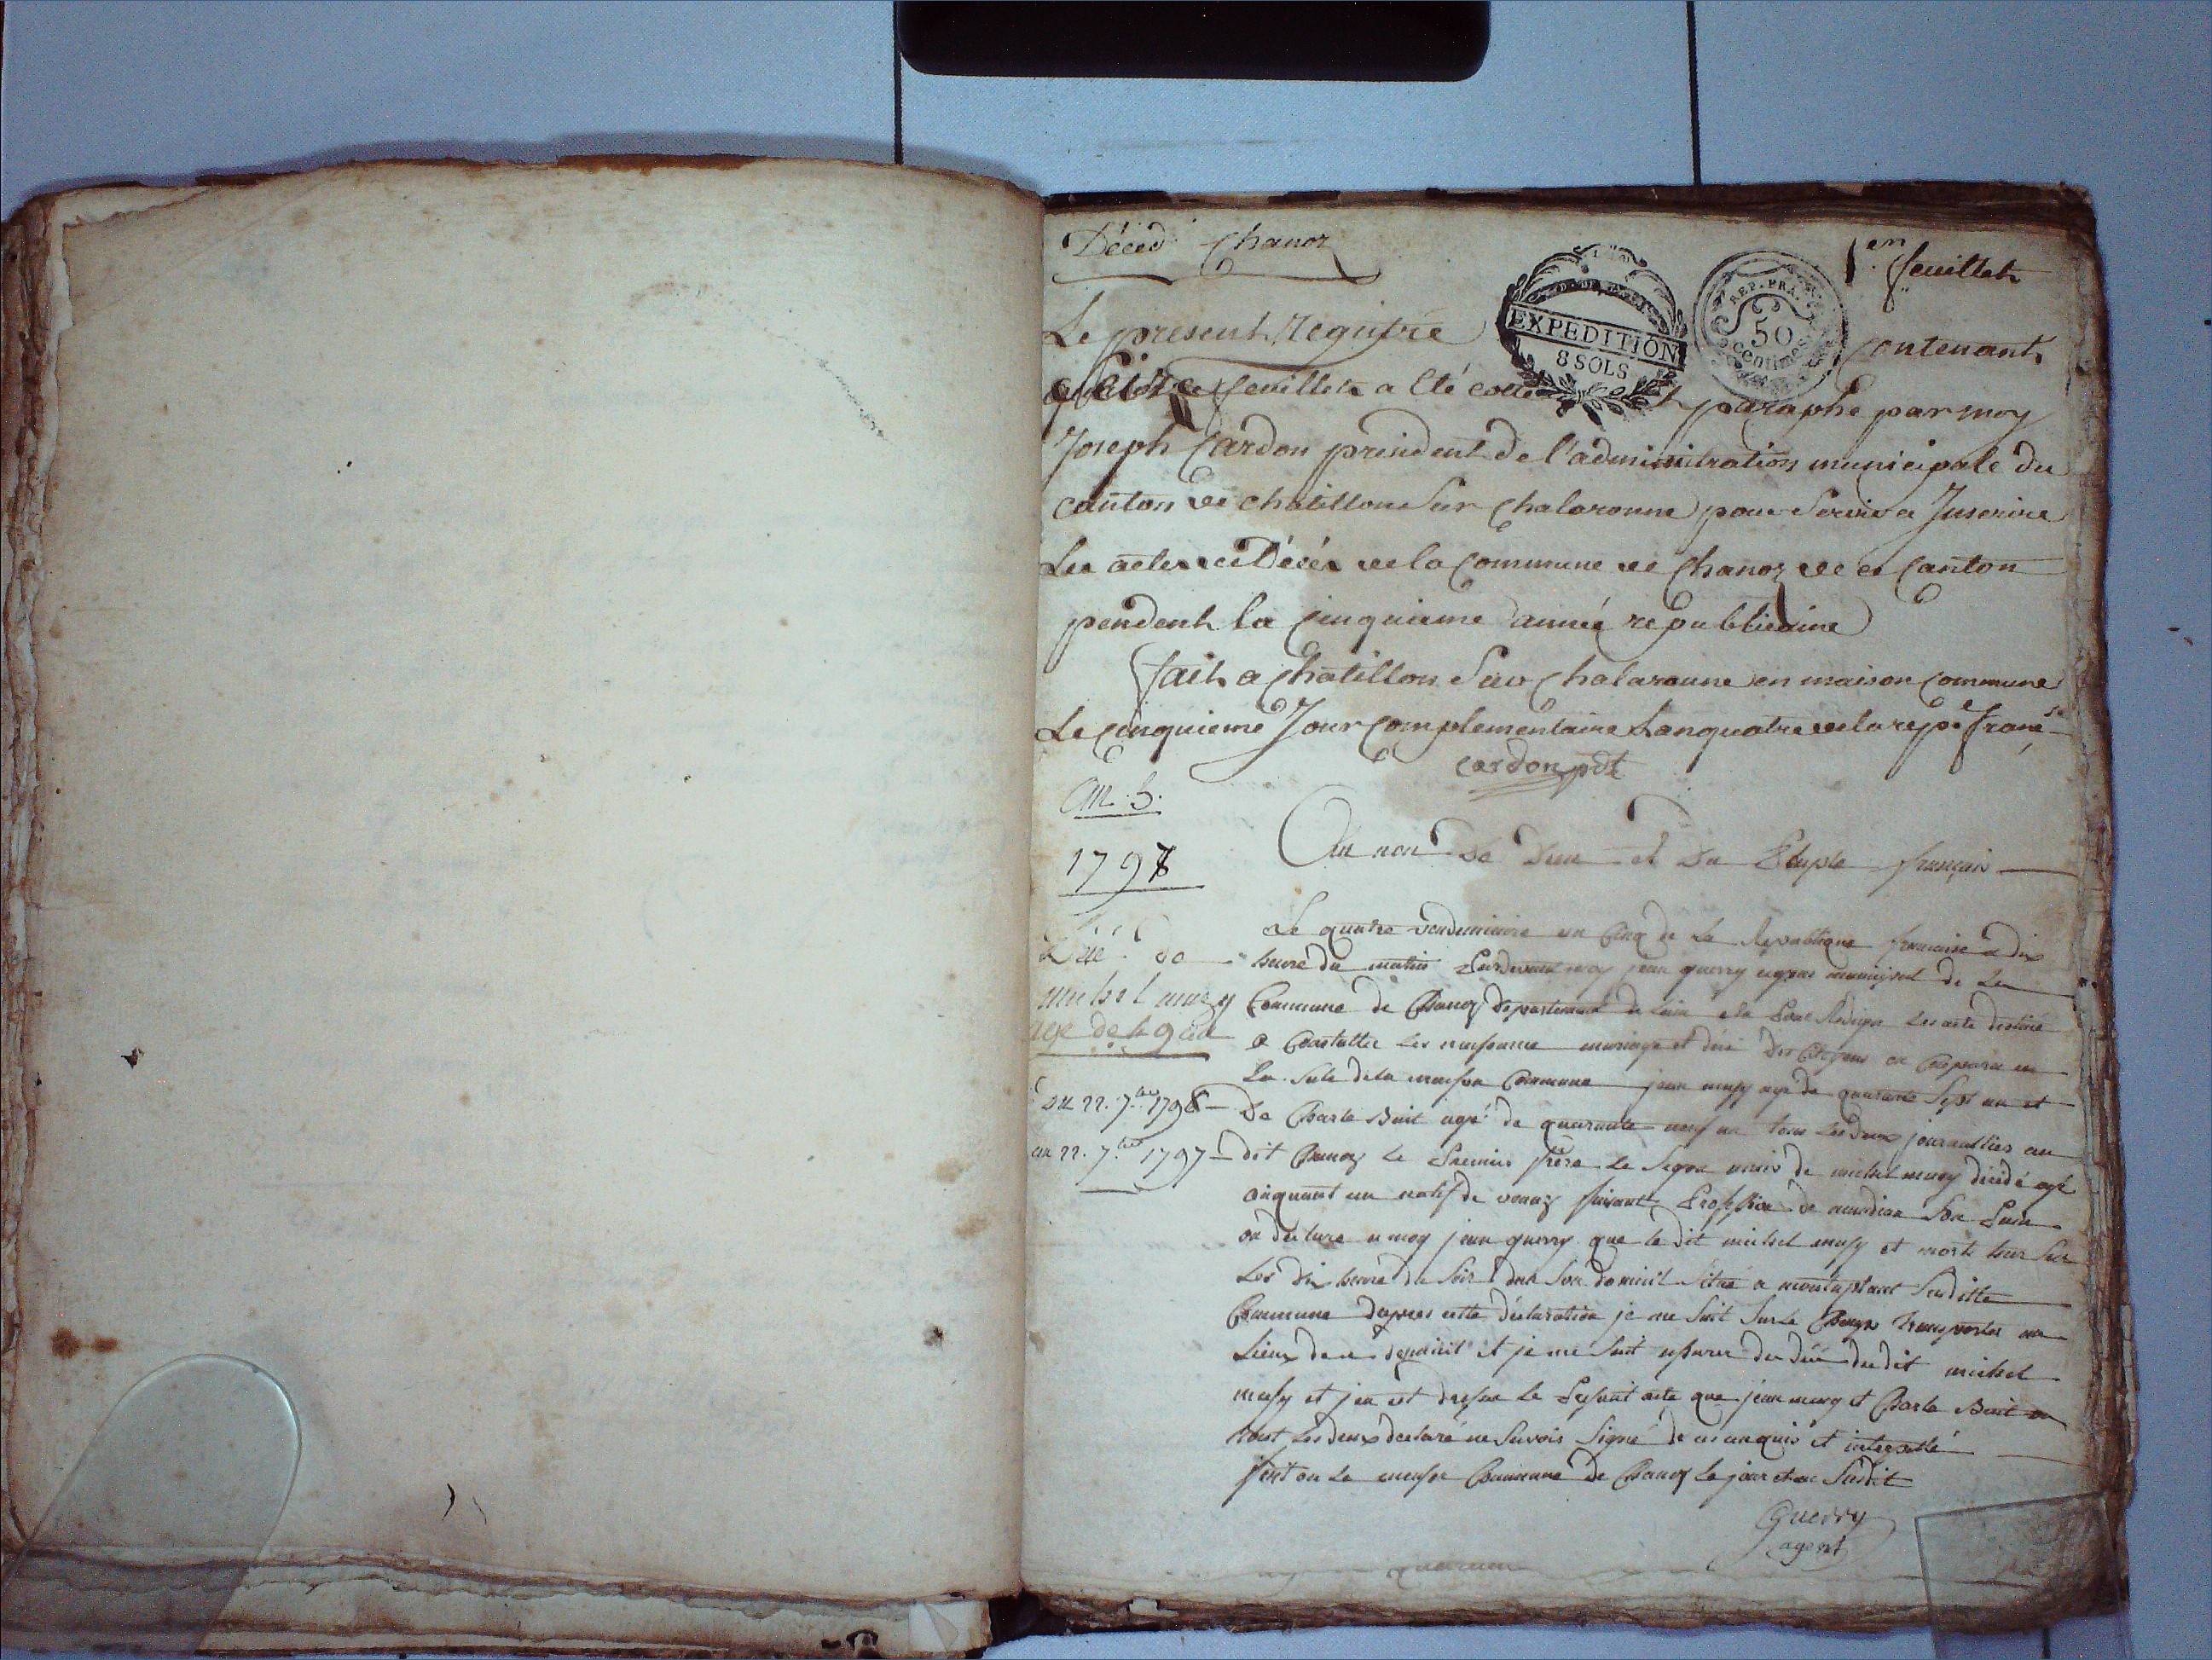 Décéd Chanoz
1er feuillet
EXPEDITION
8 SOLS
REP. FRA.
50
centimes
Le present Registre contenant
feuillets a Eté cotté et paraphé par moy
Joseph Cardon president de l'administration municipale du
canton de chatillon Sur Chalaronne pour Servir a Inscrire
Les actes de Décés de la Commune de Chanoz de ce Canton
pendent la Cinquieme année republicaine
fait a Chatillon Sur Chalaronne en maison Commune
Le Cinquieme Jour Complementaire Lan quatre de la repe franse
Cardon pdt
an 5.
1797
Au non De Dieu et Du Peuple français
Le quatre vendemiaire an Cinq de La Republique francaise a dix
heure du matin Pardevant moy jean guerry agent municipal de La
Commune de Chanoz Departement de Lain Les acte destiné
a Constatter Les naissance mariage et déce Des Citoyens
La Sale de la maison Commune jean musy age de quarante Sept an et
De Charle Buit agé de quarante neuf an tous Les deux journallier au
dit Chanoz Le Premier frère Le Segon de michel musy décédé agé
cinquant un natif de vonnaz Profession de
on déclare a moy jean guerry que le dit michel musy et mort hier Sur
Les dix heure du Soir dans Son domicil Situé a Susditte
Commune dapres cette déclaration je me Suit Sur Le Champ transporter au
Lieux de ce domicil et je me Suit assurer du décé du dit michel
musy et jen est dresser Le Present acte que jean musy et Charle Buit
tout Les deux déclaré ne Savoir Signé de ce enquis et interpellé
fait en La maison Commune de Chanoz Le jour et an Susdit
Guerry
agent
Décé de
michel muzy
age de 49 an
du 22. 7bre 1798
au 22. 7bre 1797